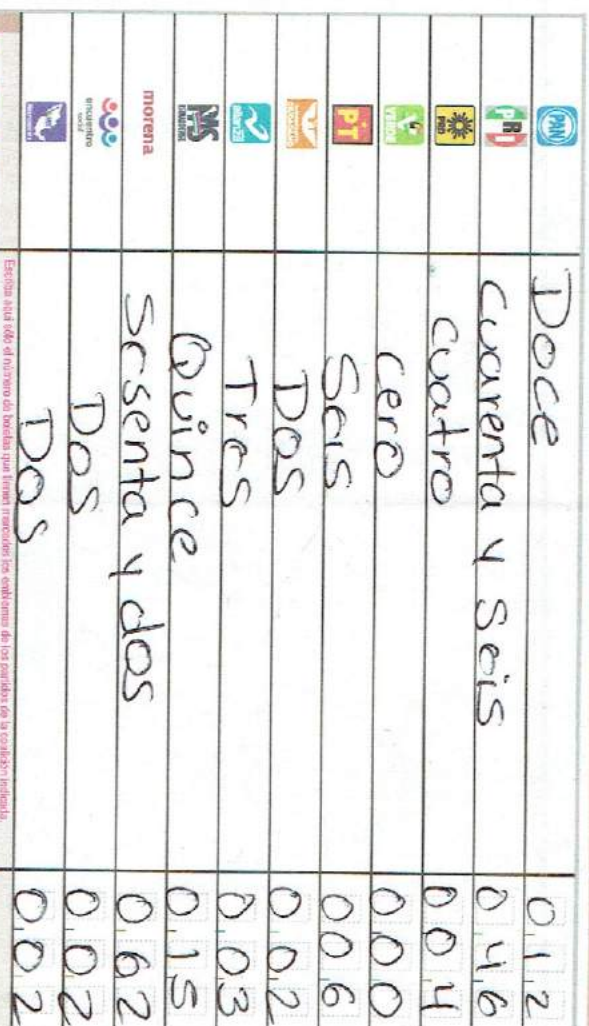 PAN Doce 012
PRI Cuarenta y Seis 046
PRD cuatro 004
VERDE cero 000
PT Seis 006
DOS 002
alianza Tres 003
Quince 015
morena Sesenta y dos 062
encuentro social DOS 002
DOS 002
Escriba aquí sólo el número de boletas que tienen marcados los emblemas de los partidos de la coalición indicada.